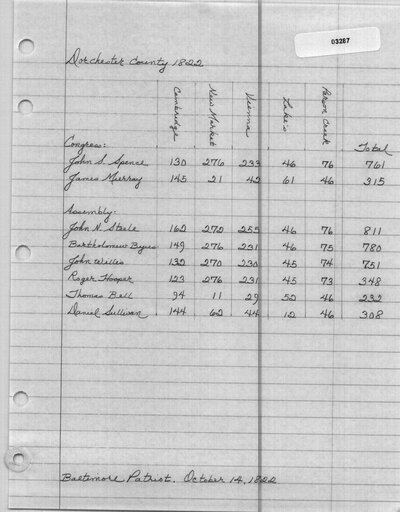 03287
Dorchester County 1822
Cambridge New Market Vienna Lake's Parson Creek Total
Congress:
John S. Spence 130 276 233 46 76 761
James Murray 145 21 42 61 46 315
Assembly:
John N. Steele 162 272 255 46 76 811
Bartholomew Byus 149 276 231 46 75 780
John Willis 132 270 230 45 74 751
Roger Hooper 123 276 231 45 73 348
Thomas Bell 94 11 29 52 46 232
Daniel Sullivan 144 62 44 12 46 308
Baltimore Patriot. October 14, 1822